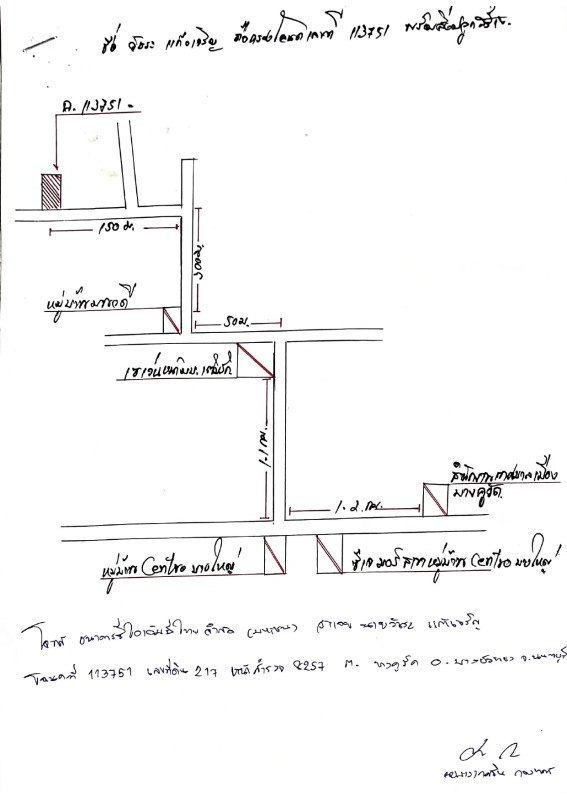 ชื่อ วัชระ แก้วเจริญ ถือครองโฉนดเลขที่ 113751 พร้อมสิ่งปลูกสร้าง
ฉ. 113751
150 ม.
500 ม.
หมู่บ้าน
50 ม.
1.1 กม.
สำนักงานเทศบาลเมือง
บางคูรัด
1.2 กม.
หมู่บ้าน Centro บางใหญ่
หมู่บ้าน Centro บางใหญ่
โจทก์ ธนาคารซีไอเอ็มบีไทย จำกัด (มหาชน) จำเลย นายวัชระ แก้วเจริญ
โฉนดที่ 113751 เลขที่ดิน 217 หน้าสำรวจ 8257 ต. บางคูรัด อ. บางบัวทอง จ. นนทบุรี